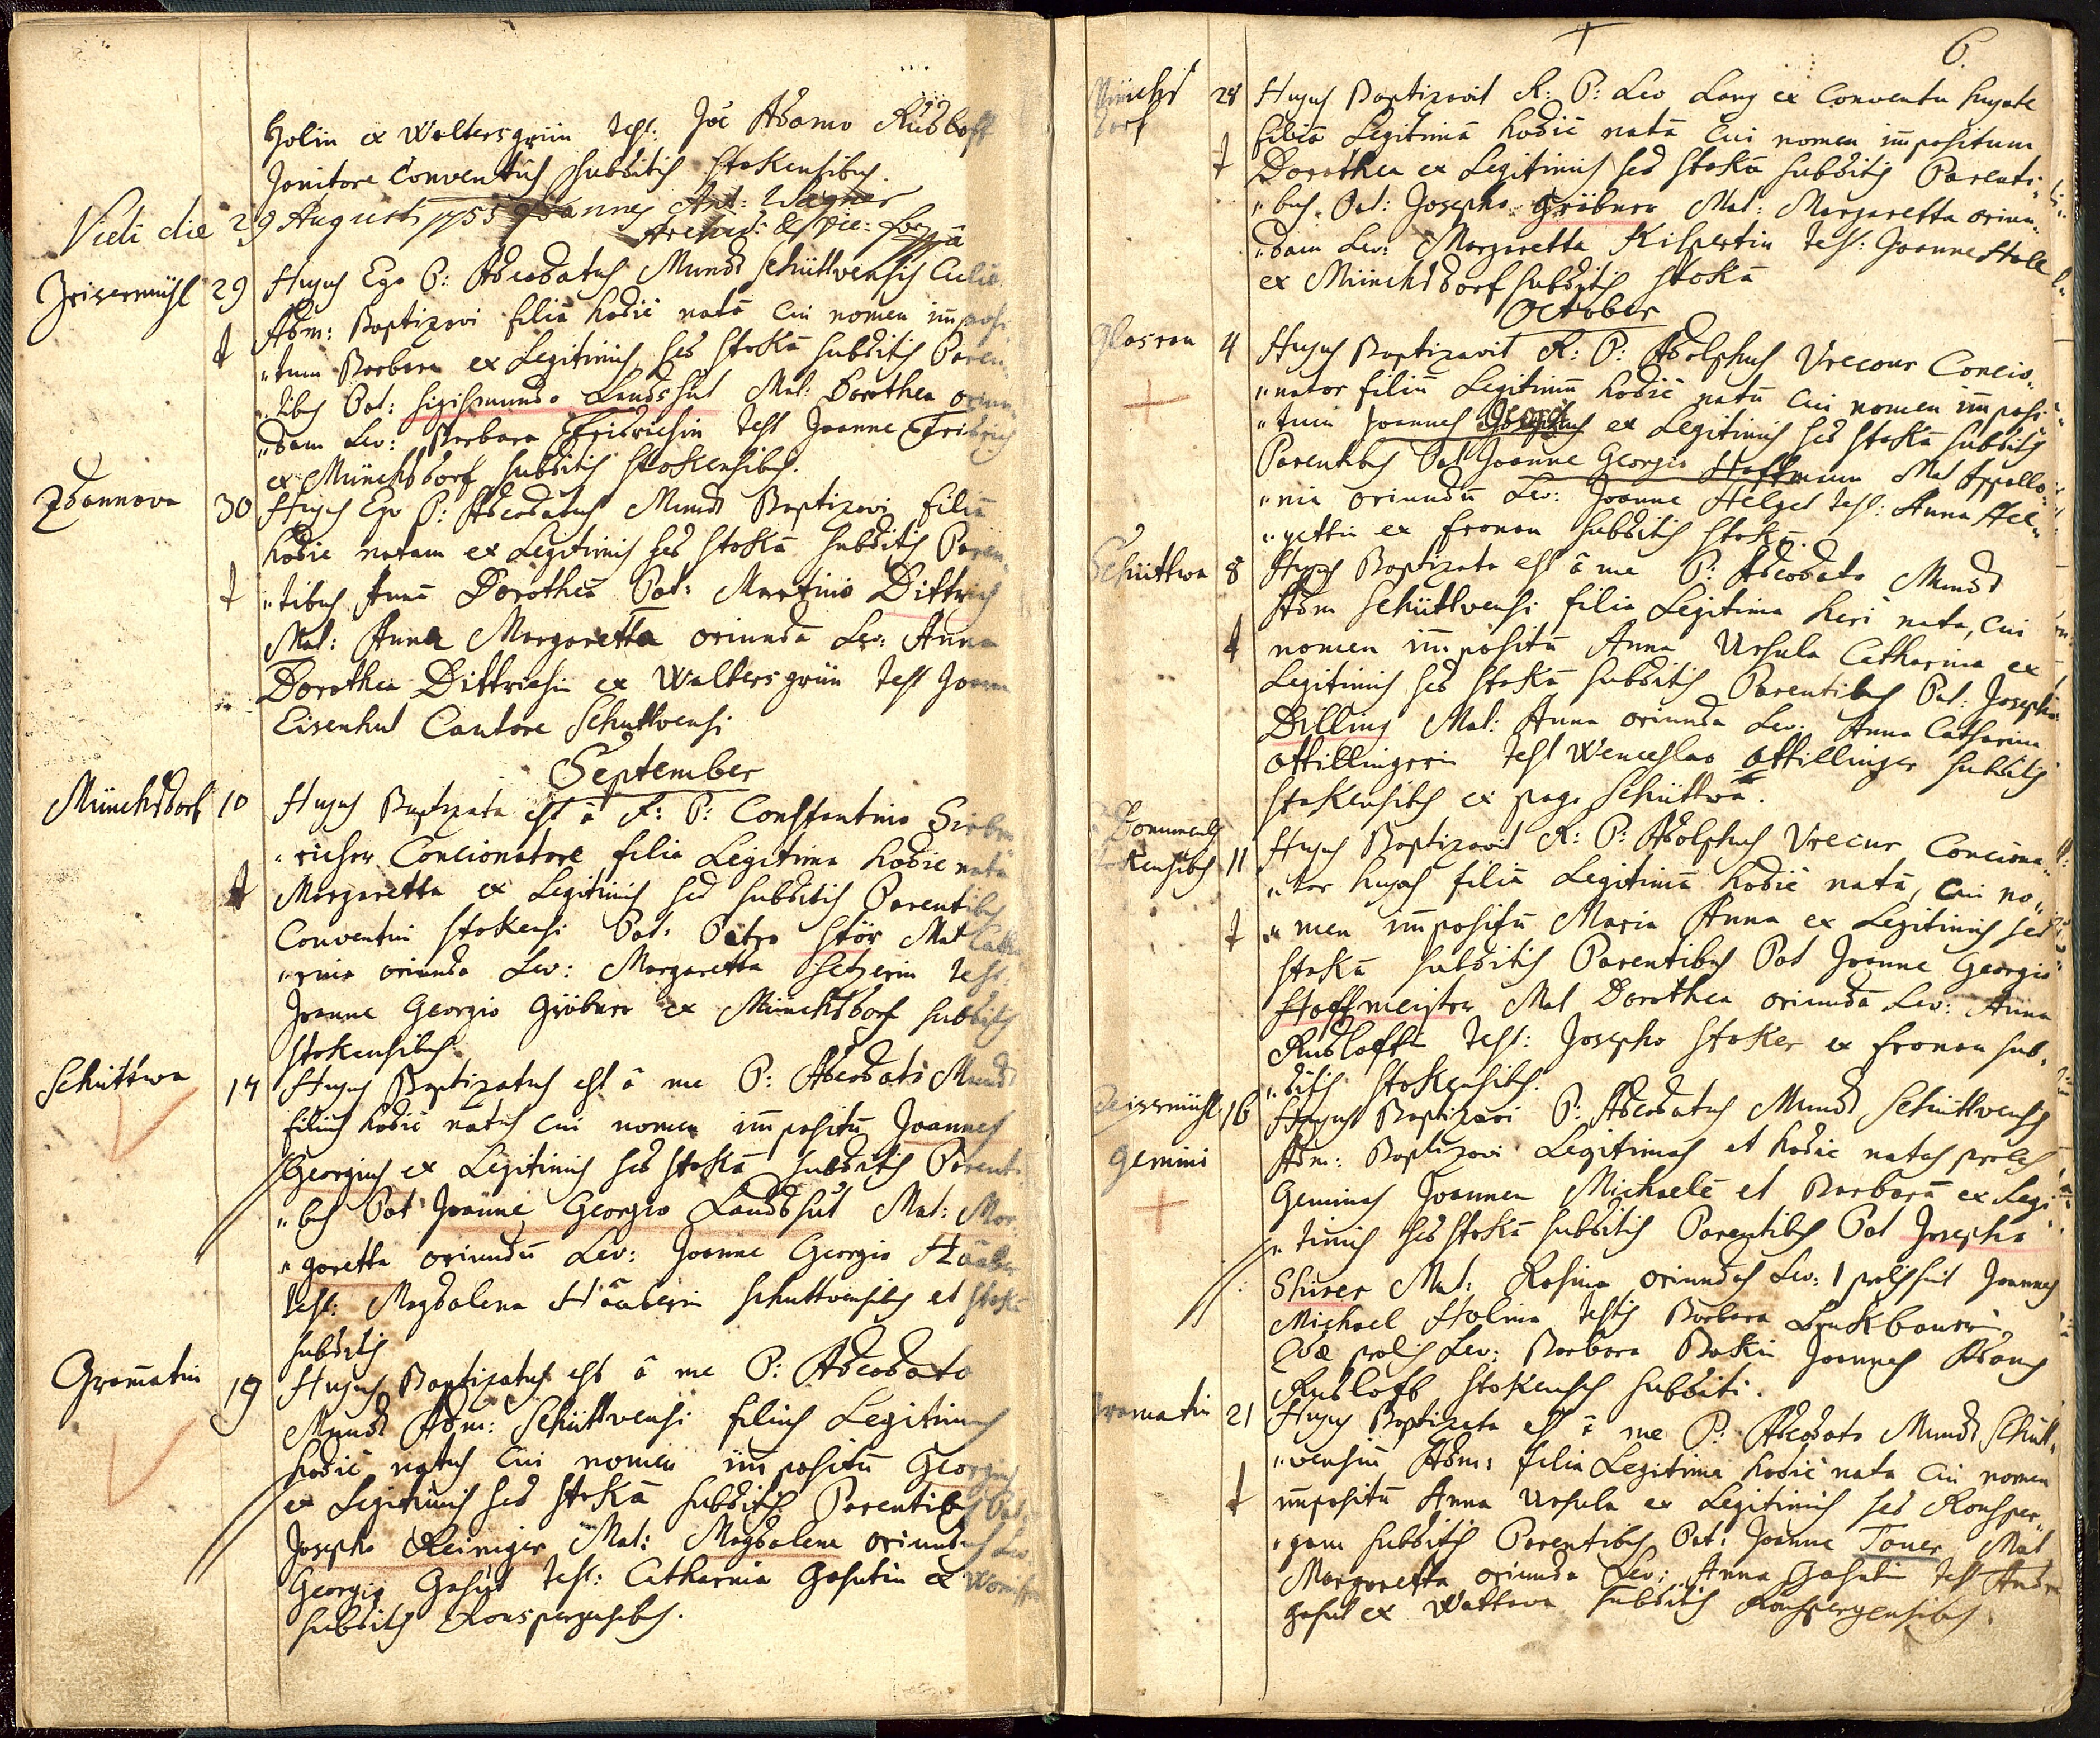 Holin ex Waltersgrün Test: Joe Adamo Rudloff
Janitore Conventûs subditis stokensibus.
Vidi die 29 Augusti 1755 Joannes Ant: Wagner
Archid: & Vic: For
Zeisermühl 29 Hujus Ego P: Adeodatus Mundt Schüttvensis
Adm: Baptizavi filiā hodie natā cui nomen imposi
"tum Barbara ex Legitimis sed stokā subditis Paren
"tibus Pat: Sigismundo Landshut Mat: Dorothea oriun
"dam Lev: Barbara Fridrichin Test Joanne Fridrich
ex Münchsdorf subditis stokensibus.
Zdannova 30 Hujus Ego P: Adeodatus Mundt Baptizavi filiā
hodie natam ex Legitimis sed stokā subditis Paren
"tibus Annā Dorotheā Pat: Martino Dittrich
Mat: Anna Margaretta oriundā Lev: Anna
Dorothea Dittrichin ex Waltersgrün Test Joann
Eisenhut Cantore Schuttvensi
September
Münchsdorf 10 Hujus Baptizata est â R: P: Constantino
"richer Concionatore filia Legitima hodie nata
Margaretta ex Legitimis sed subditis Parentibus
Conventui stokensi Pat: Petro Stör Mat Catha
"rina oriunda Lev: Margaretta Setzerin Test:
Joanne Georgio Gröbner ex Münchsdorf subditis
stokensibus.
Schüttwa 14 Hujus Baptizatus est â me P: Adeodato Mundt
filius hodie natus cui nomen impositū Joannes
Georgius ex Legitimis sed stokā subditis Parenti
"bus Pat Joanne Georgio Landshut Mat: Mar
"garetta oriundū Lev: Joanne Georgio Häuber
Test: Magdalena Häuberin schuttvensibus et stokā
subditis
Gramatin 19 Hujus Baptizatus est â me P: Adeodato
Mundt Adm: Schüttvensi filius Legitimus
hodie natus cui nomen impositū Georgius
ex Legitimis sed stokā subditis Parentibus Pat:
Josepho Reiniger Mat: Magdalena oriundus Lev
Georgio Gahut Test: Catharina Gahutin ex
subditis Ronspergensibus.
6.
Münchsdorf 28 Hujus Baptizavit R: P: Leo Lang ex Conventu hujate
filiā Legitimā hodie natā cui nomen impositum
Dorothea ex Legitimis sed stokā subditis Parenti
"bus Pat: Josepho Gröbner Mat: Margaretta oriun
"dam Lev: Margaretta Kilpertin Test: Joanne Holl
ex Münchsdorf subditis stokā
October
Glosrau 4 Hujus Baptizavit R: P: Adolphus Vrecour Concio
"nator filiū Legitimū hodie natū cui nomen imposi
"tum Joannes ex Legitimis sed stokā subditis
Parentibus Pat Joanne Georgio Hoffmann Mat Appollo
"nia oriundū Lev: Joanne Helget Test: Anna Hel
"gettin ex Fronau subditis stokā.
Schüttwa 8 Hujus Baptizata est â me P: Adeodato Mundt
Adm Schüttvensi filia Legitima heri nata, cui
nomen impositū Anna Ursula Catharina ex
Legitimis sed stokā subditis Parentibus Pat: Josepho
Dilling Mat: Anna oriunda Lev: Anna Catharina
Ottillingerin Test Wenceslao Ottillinger subditis
stokensibus ex pago Schüttwa.
11 Hujus Baptizavit R: P: Adolphus Vrecur Conciona
"tor hujas filiā Legitimā hodie natā, cui no
"men impositū Maria Anna ex Legitimis sed
stokā subditis Parentibus Pat Joanne Georgio
Hoffmeister Mat Dorothea oriundā Lev: Anna
Rudloffin Test: Josepho Stoker ex Fronau sub
"ditis stokensibus.
Zeisermühl 16 Hujus Baptizavi P: Adeodatus Mundt Schüttvensis
Gemini Adm: Baptizavi Legitimas et hodie natas proles
Geminas Joannem Michaelē et Barbarā ex Legi
"timis sed stokā subditis Parentibus Pat Josepho
Shirer Mat: Rosina oriundas Lev: 1 prolis fuit Joannes
Michael Holina Testis Barbara
2dæ prolis Lev: Barbara Joannes Adamus
Rudloff stokenses subditi.
Gramatin 21 Hujus Baptizata est â me P: Adeodato Mundt Schütt
"vensium Adm: filia Legitima hodie nata cui nomen
impositū Anna Ursula ex Legitimis sed Ronsper
"gam subditis Parentibus Pat: Joanne Toner Mat
Margaretta oriunda Lev: Anna Gahutin Test Andre
Gahut ex Wattawa subditis Ronspergensibus.